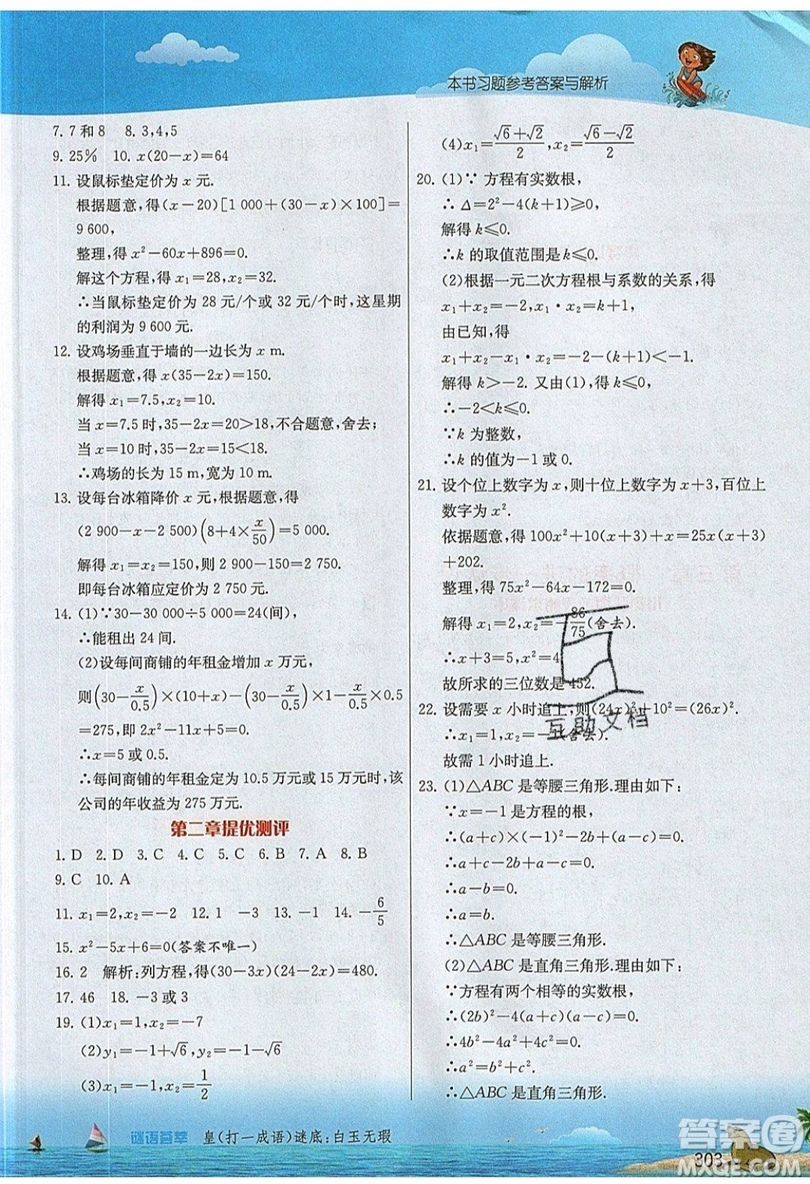 本书习题参考答案与解析
7. 7 和 8　8. 3,4,5
9. 25%　10. x(20－x)＝64
11. 设鼠标垫定价为 x 元.
根据题意，得(x－20)[1 000＋(30－x)×100]＝
9 600,
整理，得 x²－60x＋896＝0.
解这个方程，得 x₁＝28,x₂＝32.
∴当鼠标垫定价为 28 元/个或 32 元/个时，这星期
的利润为 9 600 元.
12. 设鸡场垂直于墙的一边长为 x m.
根据题意，得 x(35－2x)＝150.
解得 x₁＝7.5,x₂＝10.
当 x＝7.5 时,35－2x＝20＞18,不合题意,舍去；
当 x＝10 时,35－2x＝15＜18.
∴鸡场的长为 15 m,宽为 10 m.
13. 设每台冰箱降价 x 元,根据题意,得
(2 900－x－2 500)(8＋4×x/50)＝5 000.
解得 x₁＝x₂＝150,则 2 900－150＝2 750.
即每台冰箱应定价为 2 750 元.
14. (1)∵30－30 000÷5 000＝24(间),
∴能租出 24 间.
(2)设每间商铺的年租金增加 x 万元,
则(30－x/0.5)×(10＋x)－(30－x/0.5)×1－x/0.5×0.5
＝275,即 2x²－11x＋5＝0.
∴x＝5 或 0.5.
∴每间商铺的年租金定为 10.5 万元或 15 万元时,该
公司的年收益为 275 万元.
第二章提优测评
1. D　2. D　3. C　4. C　5. C　6. B　7. A　8. B
9. C　10. A
11. x₁＝2,x₂＝－2　12. 1　－3　13. －1　14. －6/5
15. x²－5x＋6＝0(答案不唯一)
16. 2　解析:列方程,得(30－3x)(24－2x)＝480.
17. 46　18. －3 或 3
19. (1)x₁＝1,x₂＝－7
(2)y₁＝－1＋√6,y₂＝－1－√6
(3)x₁＝－1,x₂＝1/2
(4)x₁＝(√6＋√2)/2,x₂＝(√6－√2)/2
20. (1)∵ 方程有实数根,
∴ Δ＝2²－4(k＋1)≥0,
解得 k≤0.
∴k 的取值范围是 k≤0.
(2)根据一元二次方程根与系数的关系,得
x₁＋x₂＝－2,x₁·x₂＝k＋1,
由已知,得
x₁＋x₂－x₁x₂＝－2－(k＋1)＜－1.
解得 k＞－2. 又由(1),得 k≤0,
∴－2＜k≤0.
∵k 为整数,
∴k 的值为－1 或 0.
21. 设个位上数字为 x,则十位上数字为 x＋3,百位上
数字为 x².
依据题意,得 100x²＋10(x＋3)＋x＝25x(x＋3)
＋202.
整理,得 75x²－64x－172＝0.
解得 x₁＝2,x₂＝－86/75(舍去).
∴x＋3＝5,x²＝4
故所求的三位数是 452.
22. 设需要 x 小时追上,则(24x)²＋10²＝(26x)².
∴x₁＝1,x₂＝－1(舍去).
故需 1 小时追上.
互助文档
23. (1)△ABC 是等腰三角形.理由如下:
∵x＝－1 是方程的根,
∴(a＋c)×(－1)²－2b＋(a－c)＝0.
∴a＋c－2b＋a－c＝0.
∴a－b＝0.
∴a＝b.
∴△ABC 是等腰三角形.
(2)△ABC 是直角三角形.理由如下:
∵方程有两个相等的实数根,
∴(2b)²－4(a＋c)(a－c)＝0.
∴4b²－4a²＋4c²＝0.
∴a²＝b²＋c².
∴△ABC 是直角三角形.
谜语荟萃　皇(打一成语)谜底:白玉无瑕
303
答案圈
MXQE.COM